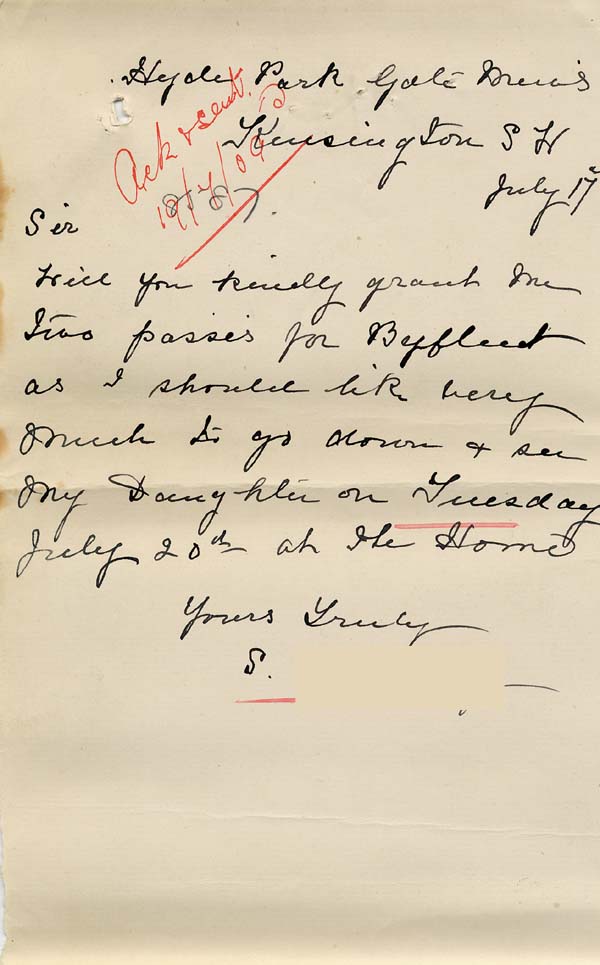 Hyde Park Gate Mews
Kensington S W
July 17
Ack & sent.
19/7/09
8587
Sir
Will you kindly grant me
two passes for Byfleet
as I should like very
much to go down & see
My Daughter on Tuesday
July 20th at the Home
Yours Truly
S.